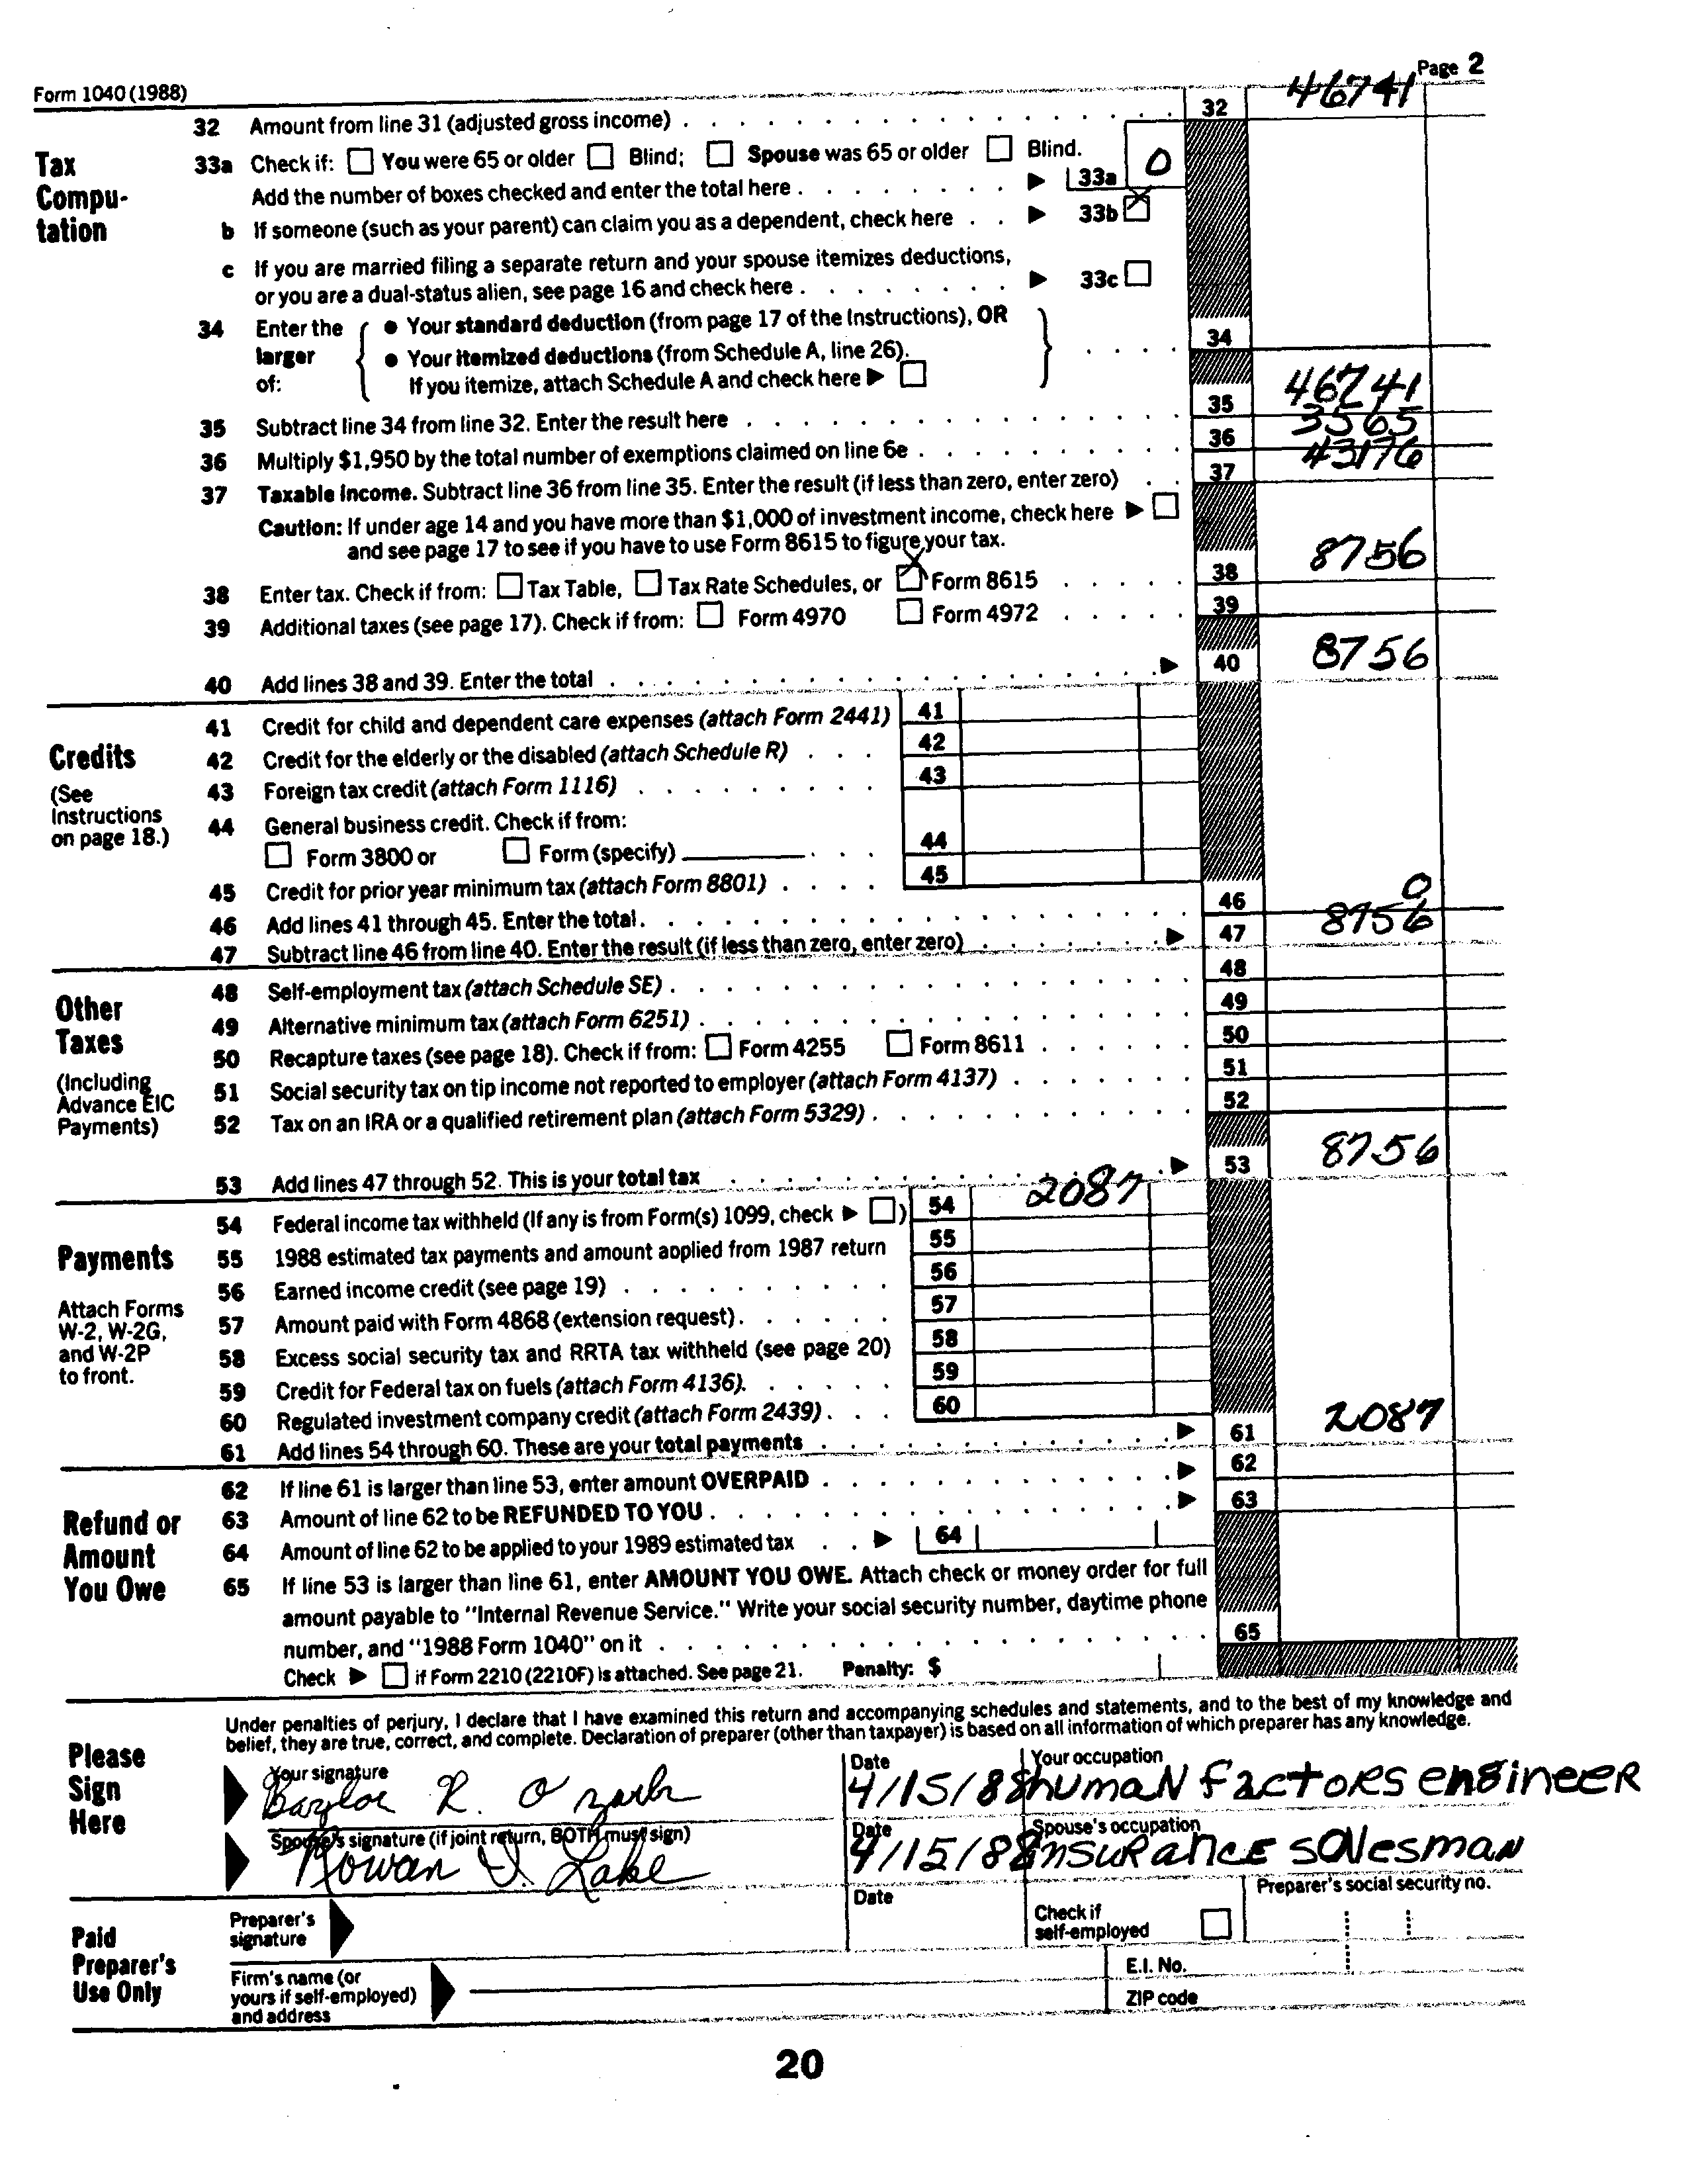 Form 1040 (1988) Page 2
32 Amount from line 31 (adjusted gross income) 32 46741
Tax Compu-tation
33a Check if: ☐ You were 65 or older ☐ Blind; ☐ Spouse was 65 or older ☐ Blind.
Add the number of boxes checked and enter the total here ▶ 33a 0
b If someone (such as your parent) can claim you as a dependent, check here ▶ 33b ☒
c If you are married filing a separate return and your spouse itemizes deductions,
or you are a dual-status alien, see page 16 and check here ▶ 33c ☐
34 Enter the larger of: { ● Your standard deduction (from page 17 of the Instructions), OR
● Your itemized deductions (from Schedule A, line 26).
If you itemize, attach Schedule A and check here ▶ ☐ } 34
35 Subtract line 34 from line 32. Enter the result here 35 46741
36 Multiply $1,950 by the total number of exemptions claimed on line 6e 36 3565
37 Taxable income. Subtract line 36 from line 35. Enter the result (if less than zero, enter zero) 37 43176
Caution: If under age 14 and you have more than $1,000 of investment income, check here ▶ ☐
and see page 17 to see if you have to use Form 8615 to figure your tax.
38 Enter tax. Check if from: ☐ Tax Table, ☐ Tax Rate Schedules, or ☒ Form 8615 38 8756
39 Additional taxes (see page 17). Check if from: ☐ Form 4970 ☐ Form 4972 39
40 Add lines 38 and 39. Enter the total ▶ 40 8756
Credits
(See Instructions on page 18.)
41 Credit for child and dependent care expenses (attach Form 2441) 41
42 Credit for the elderly or the disabled (attach Schedule R) 42
43 Foreign tax credit (attach Form 1116) 43
44 General business credit. Check if from:
☐ Form 3800 or ☐ Form (specify) 44
45 Credit for prior year minimum tax (attach Form 8801) 45
46 Add lines 41 through 45. Enter the total. 46 0
47 Subtract line 46 from line 40. Enter the result (if less than zero, enter zero) ▶ 47 8756
Other Taxes
(Including Advance EIC Payments)
48 Self-employment tax (attach Schedule SE) 48
49 Alternative minimum tax (attach Form 6251) 49
50 Recapture taxes (see page 18). Check if from: ☐ Form 4255 ☐ Form 8611 50
51 Social security tax on tip income not reported to employer (attach Form 4137) 51
52 Tax on an IRA or a qualified retirement plan (attach Form 5329) 52
53 Add lines 47 through 52. This is your total tax ▶ 53 8756
Payments
Attach Forms W-2, W-2G, and W-2P to front.
54 Federal income tax withheld (If any is from Form(s) 1099, check ▶ ☐) 54 2087
55 1988 estimated tax payments and amount applied from 1987 return 55
56 Earned income credit (see page 19) 56
57 Amount paid with Form 4868 (extension request) 57
58 Excess social security tax and RRTA tax withheld (see page 20) 58
59 Credit for Federal tax on fuels (attach Form 4136). 59
60 Regulated investment company credit (attach Form 2439) 60
61 Add lines 54 through 60. These are your total payments ▶ 61 2087
Refund or Amount You Owe
62 If line 61 is larger than line 53, enter amount OVERPAID ▶ 62
63 Amount of line 62 to be REFUNDED TO YOU ▶ 63
64 Amount of line 62 to be applied to your 1989 estimated tax ▶ 64
65 If line 53 is larger than line 61, enter AMOUNT YOU OWE. Attach check or money order for full
amount payable to "Internal Revenue Service." Write your social security number, daytime phone
number, and "1988 Form 1040" on it 65
Check ▶ ☐ if Form 2210 (2210F) is attached. See page 21. Penalty: $
Please Sign Here
Under penalties of perjury, I declare that I have examined this return and accompanying schedules and statements, and to the best of my knowledge and
belief, they are true, correct, and complete. Declaration of preparer (other than taxpayer) is based on all information of which preparer has any knowledge.
Your signature Date Your occupation
Baylor R. Ozark 4/15/88 human factors engineer
Spouse's signature (if joint return, BOTH must sign) Date Spouse's occupation
Rowan J. Lake 4/15/88 insurance salesman
Paid Preparer's Use Only
Preparer's signature Date Check if self-employed ☐ Preparer's social security no.
Firm's name (or yours if self-employed) and address E.I. No.
ZIP code
20